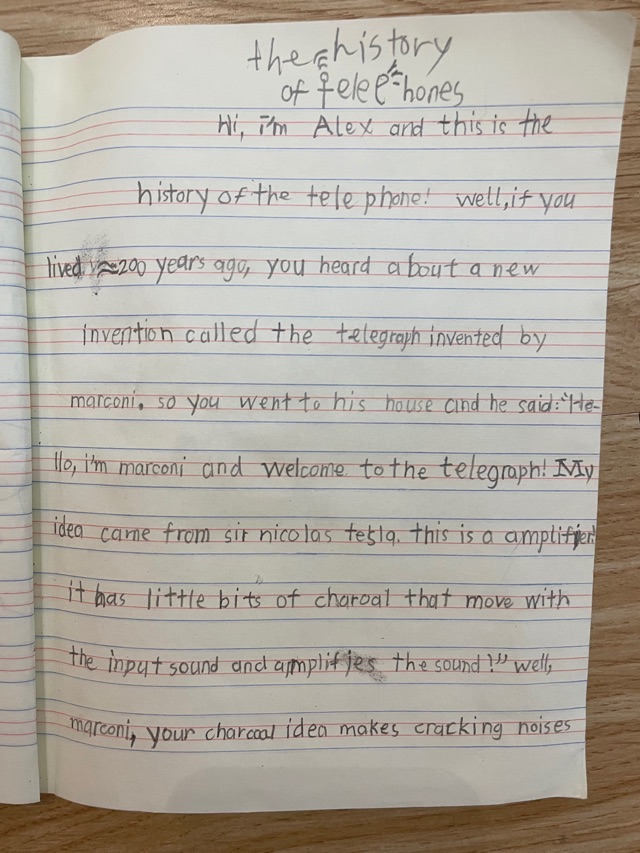 the history
of telephones
Hi, i'm Alex and this is the
history of the telephone! well, if you
lived ≈200 years ago, you heard about a new
invention called the telegraph invented by
marconi. so you went to his house and he said: "He-
llo, i'm marconi and welcome to the telegraph! My
idea came from sir nicolas tesla. this is a amplifier!
it has little bits of charoal that move with
the input sound and amplifies the sound!" well,
marconi, your charcoal idea makes cracking noises